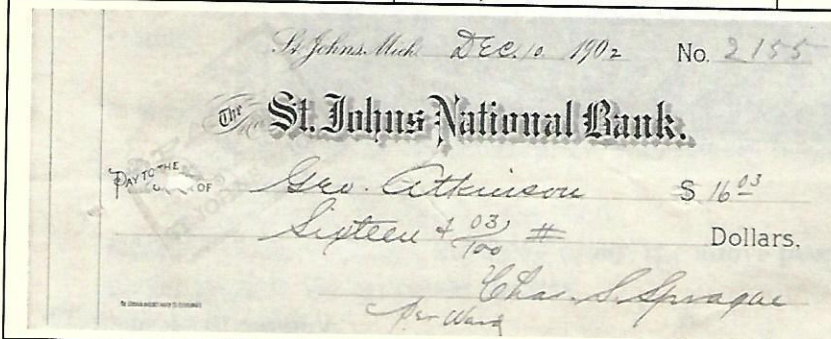 St. Johns, Mich. DEC. 10 1902 No. 2155
The St. Johns National Bank.
PAY TO THE OF Geo. Atkinson $ 16 03
Sixteen & 03/100 # Dollars.
Chas. S. Sprague
Per Ward